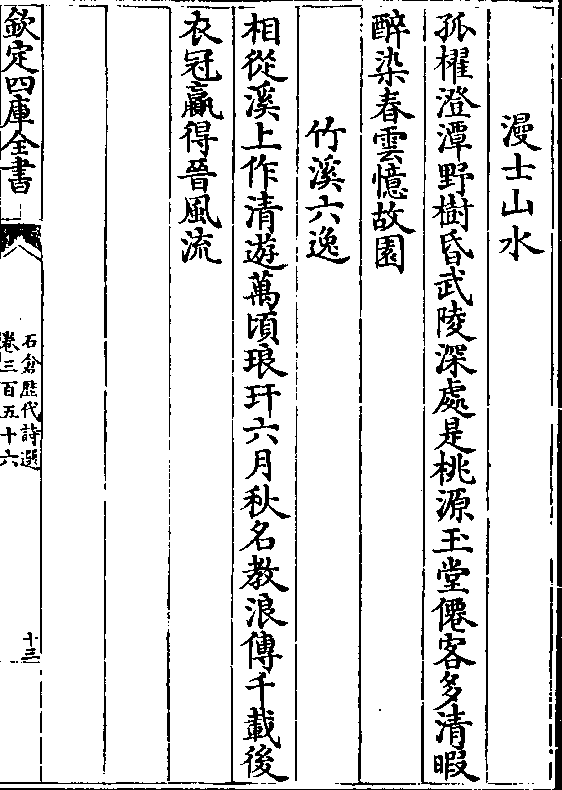 漫士山水
孤櫂澄潭野樹昏武陵深處是桃源玉堂僊客多清暇
醉染春雲憶故園
竹溪六逸
相從溪上作清遊萬頃琅玕六月秋名教浪傳千載後
衣冠贏得晉風流
欽定四庫全書
石倉歴代詩選
卷三百五十六
十三